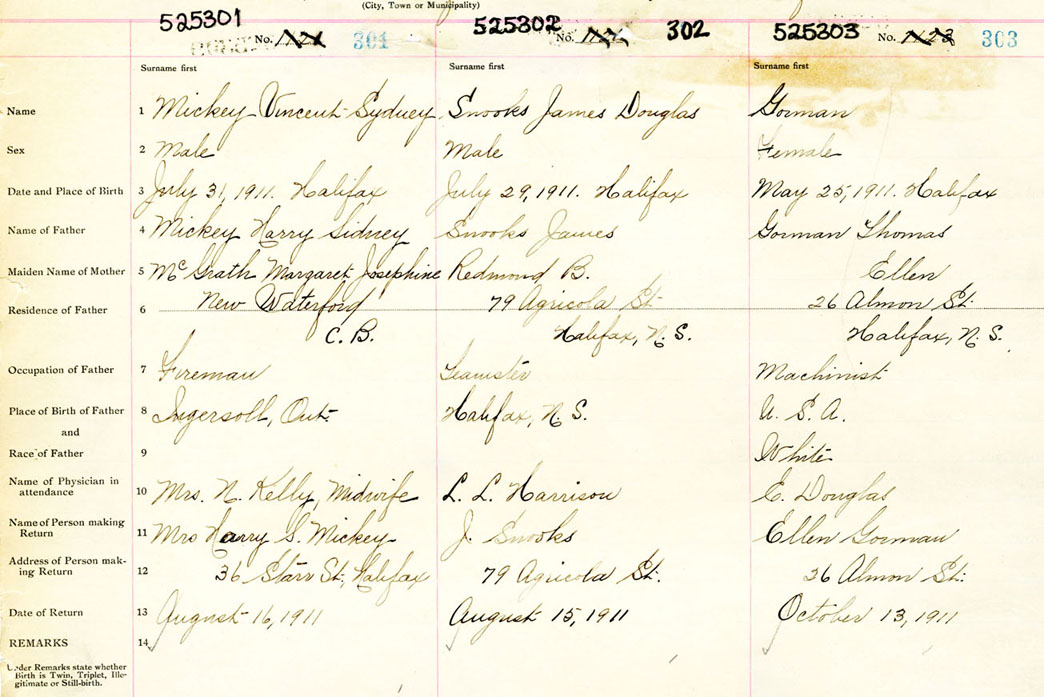 (City, Town or Municipality)
525301 No. 301
525302 No. 302
525303 No. 303
Surname first Surname first Surname first
Name 1 Mickey Vincent Sydney Snooks James Douglas Gorman
Sex 2 Male Male Female
Date and Place of Birth 3 July 31, 1911. Halifax July 29, 1911. Halifax May 25, 1911. Halifax
Name of Father 4 Mickey Harry Sidney Snooks James Gorman Thomas
Maiden Name of Mother 5 McGrath Margaret Josephine Redmond B. Ellen
Residence of Father 6 New Waterford 79 Agricola St. 26 Almon St.
C. B. Halifax, N. S. Halifax, N. S.
Occupation of Father 7 Fireman Teamster Machinist
Place of Birth of Father 8 Ingersoll, Ont. Halifax, N. S. U. S. A.
and
Race of Father 9 White
Name of Physician in
attendance 10 Mrs. N. Kelly, Midwife L. L. Harrison E. Douglas
Name of Person making
Return 11 Mrs Harry S. Mickey J. Snooks Ellen Gorman
Address of Person mak-
ing Return 12 36 Starr St., Halifax 79 Agricola St. 36 Almon St.
Date of Return 13 August 16, 1911 August 15, 1911 October 13, 1911
REMARKS 14
Under Remarks state whether
Birth is Twin, Triplet, Ille-
gitimate or Still-birth.